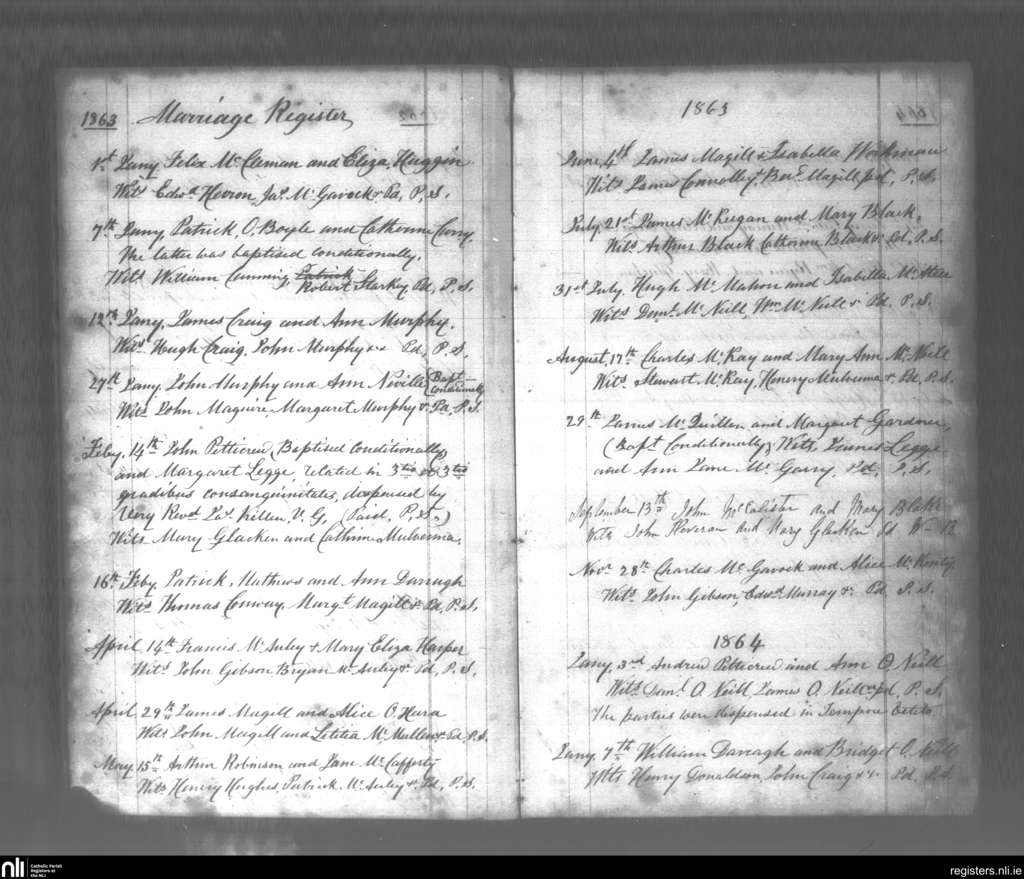 1863 Marriage Register
1st Jany Felix McClernan and Eliza Huggin
Wits Edwd Hevron, Jas McGavock & Pd, P. S.
7th Jany Patrick O. Boyle and Catherine Curry
The latter was baptised conditionally.
Wits William Cumming, Patrick
Robert Starkey Pd, P. S.
12th Jany. James Craig and Ann Murphy.
Wits Hugh Craig, John Murphy && Pd, P. S.
27th Jany. John Murphy and Ann Neville (Bapt
Conditionally
Wits John Maguire, Margaret Murphy & Pd, P. S.
Feby. 14th John Petticrew (Baptised Conditionally)
and Margaret Legge related in 3tio et 3tio
gradibus consanguinitatis, dispensed by
Very Revd Jas. Killen, V. G. (Paid, P. S.)
Wits Mary Glacken and Catherine Mulvenna.
16th Feby. Patrick Mathews and Ann Darragh
Wits Thomas Conway, Margt Magill & Pd, P. S.
April 14th Francis McAuley & Mary Eliza Harper
Wits John Gibson, Bryan McAuley & Pd, P. S.
April 29th James Magill and Alice O. Hara
Wits John Magill and Letitia McMullan & Pd P. S.
May 15th Arthur Robinson and Jane McCafferty
Wits Henry Hughes, Patrick McAuley & Pd, P. S.
1863
June 4th James Magill & Isabella Workman
Wits James Connolly & Magill pd, P. S.
July 21st James McKeegan and Mary Black.
Wits Arthur Black Catherine Black & Pd. P. S.
31st July. Hugh McMahon and Isabella McAteer
Wits Danl McNeill, Wm McNeill & Pd. P. S.
August 17th Charles McKay and Mary Ann McNeill
Wits. Stewart McKay, Henery Mulvenna & Pd. P. S.
29th James McQuillan and Margaret Gardner,
(Bapt Conditionally) Wits James Legge
and Ann Jane McGarry, Pd, P. S.
September 13th John McCalister and Mary Blake
Wits John Heveran and Mary Glacken Pd
Novr 28th Charles McGavock and Alice McKenty
Wits John Gibson, Edwd Murray & Pd P. S.
1864
Jany. 3rd Andrew Petticrew and Ann O Neill
Wits Danl O. Neill, James O. Neill & pd, P. S.
The parties were dispensed in Tempore Vetito
Jany. 7th William Darragh and Bridget O. Neill
Wits Henry Donaldson, John Craig && Pd P. S.
nli
Catholic Parish
Registers at
the NLI
registers.nli.ie